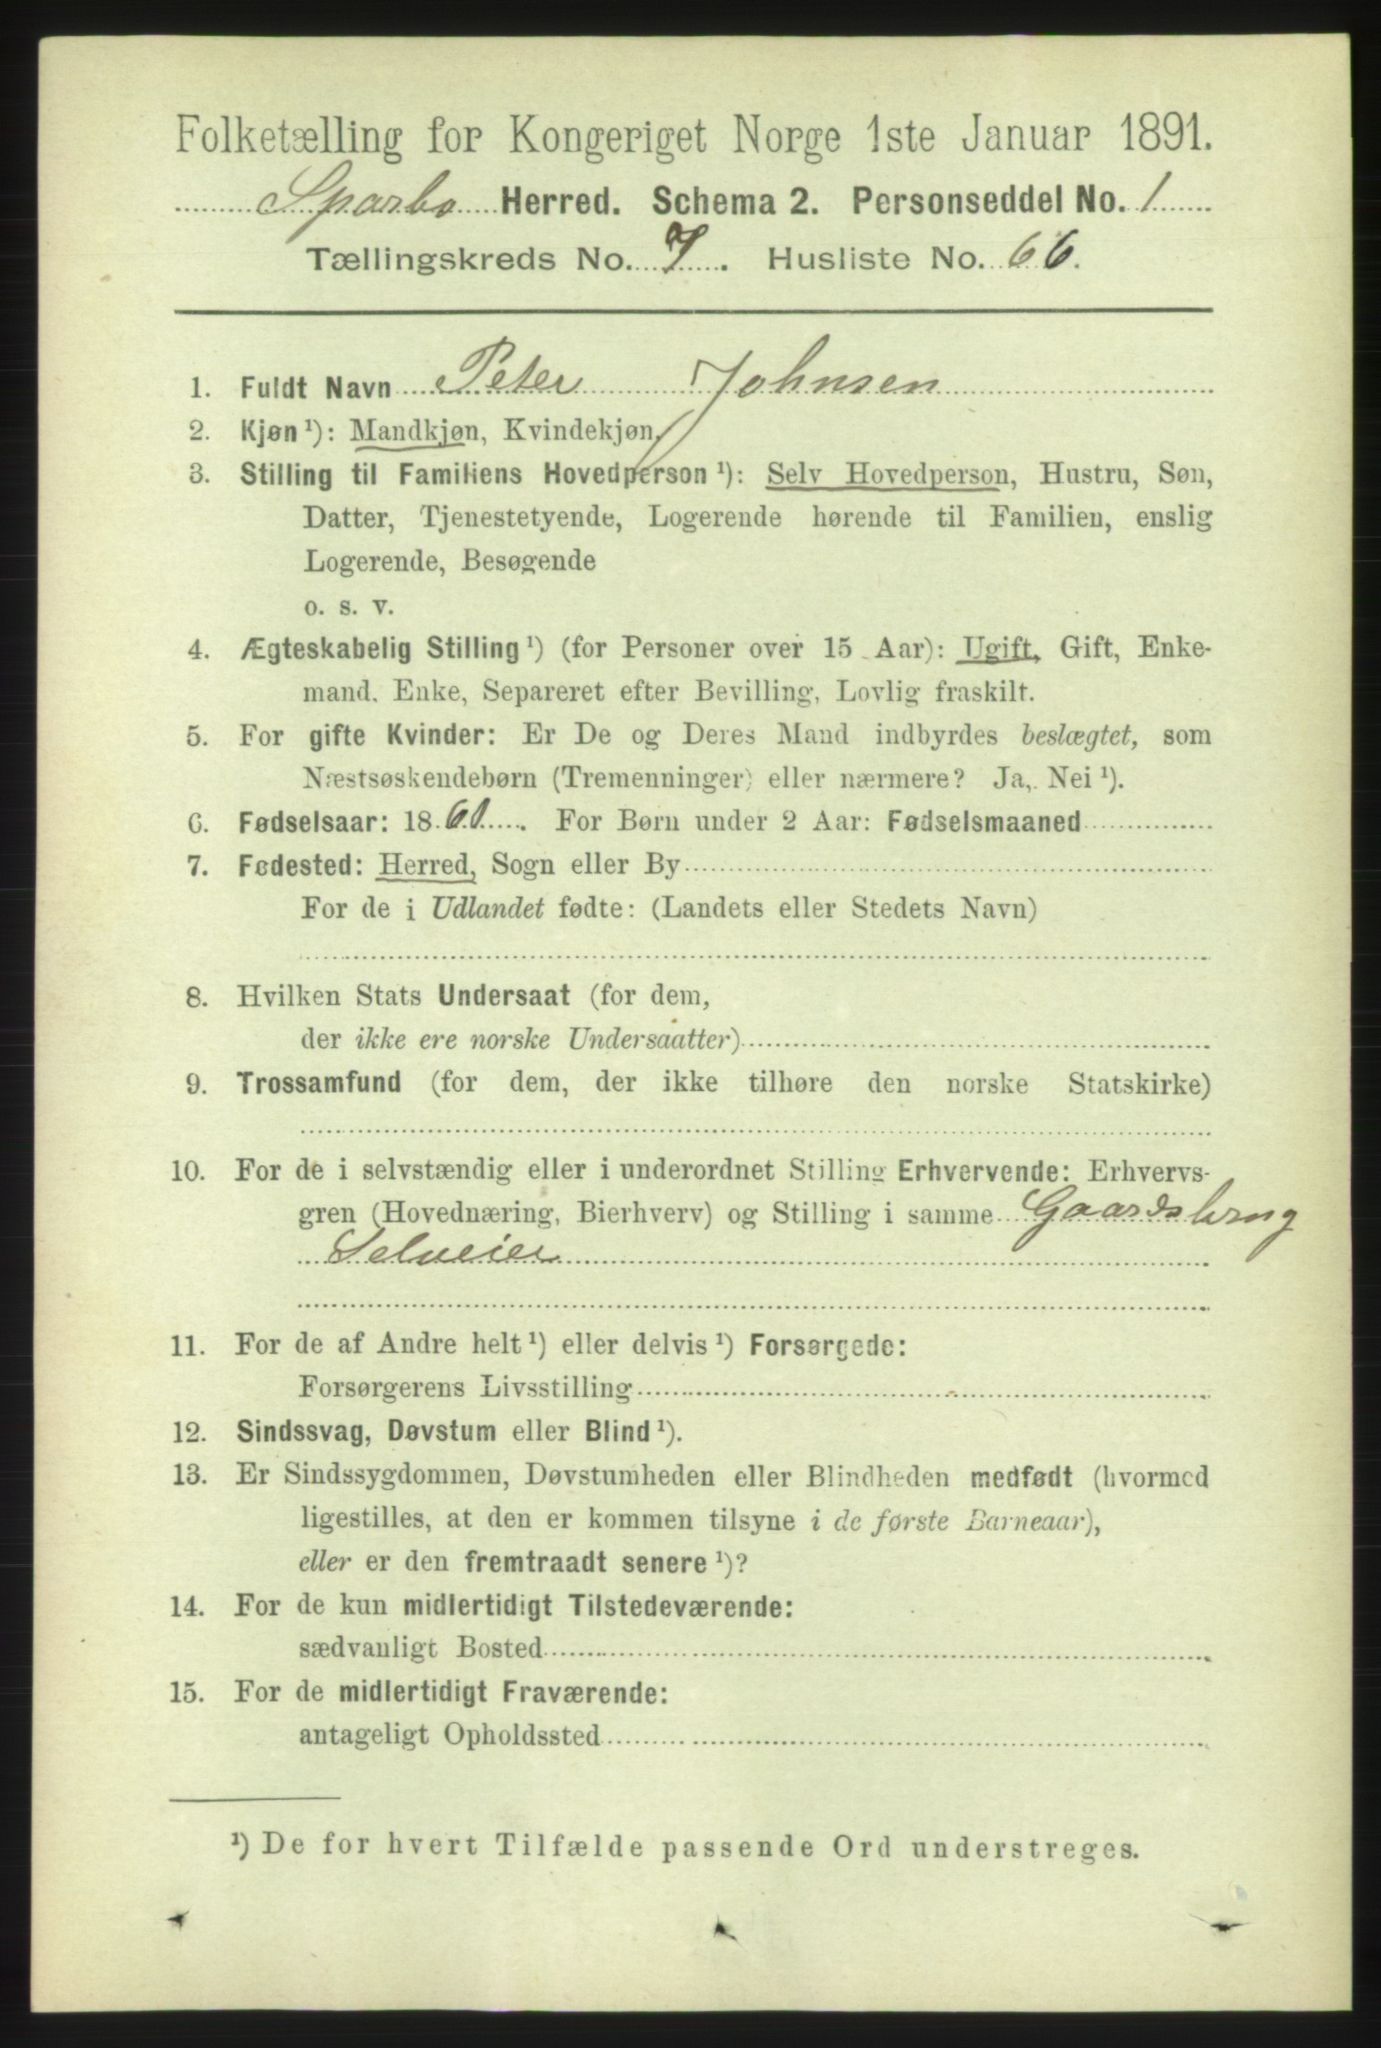 Folketælling for Kongeriget Norge 1ste Januar 1891.
Sparbo Herred. Schema 2. Personseddel No. 1
Tællingskreds No. 7. Husliste No. 66.
1. Fuldt Navn Peter Johnsen
2. Kjøn ¹): Mandkjøn, Kvindekjøn,
3. Stilling til Familiens Hovedperson ¹): Selv Hovedperson, Hustru, Søn,
Datter, Tjenestetyende, Logerende hørende til Familien, enslig
Logerende, Besøgende
o. s. v.
4. Ægteskabelig Stilling ¹) (for Personer over 15 Aar): Ugift, Gift, Enke-
mand, Enke, Separeret efter Bevilling, Lovlig fraskilt.
5. For gifte Kvinder: Er De og Deres Mand indbyrdes beslægtet, som
Næstsøskendebørn (Tremenninger) eller nærmere? Ja, Nei ¹).
6. Fødselsaar: 1861. For Børn under 2 Aar: Fødselsmaaned
7. Fødested: Herred, Sogn eller By
For de i Udlandet fødte: (Landets eller Stedets Navn)
8. Hvilken Stats Undersaat (for dem,
der ikke ere norske Undersaatter)
9. Trossamfund (for dem, der ikke tilhøre den norske Statskirke)
10. For de i selvstændig eller i underordnet Stilling Erhvervende: Erhvervs-
gren (Hovednæring, Bierhverv) og Stilling i samme Gaardsbrug
Selveier
11. For de af Andre helt ¹) eller delvis ¹) Forsørgede:
Forsørgerens Livsstilling
12. Sindssvag, Døvstum eller Blind ¹).
13. Er Sindssygdommen, Døvstumheden eller Blindheden medfødt (hvormed
ligestilles, at den er kommen tilsyne i de første Barneaar),
eller er den fremtraadt senere ¹)?
14. For de kun midlertidigt Tilstedeværende:
sædvanligt Bosted
15. For de midlertidigt Fraværende:
antageligt Opholdssted
¹) De for hvert Tilfælde passende Ord understreges.